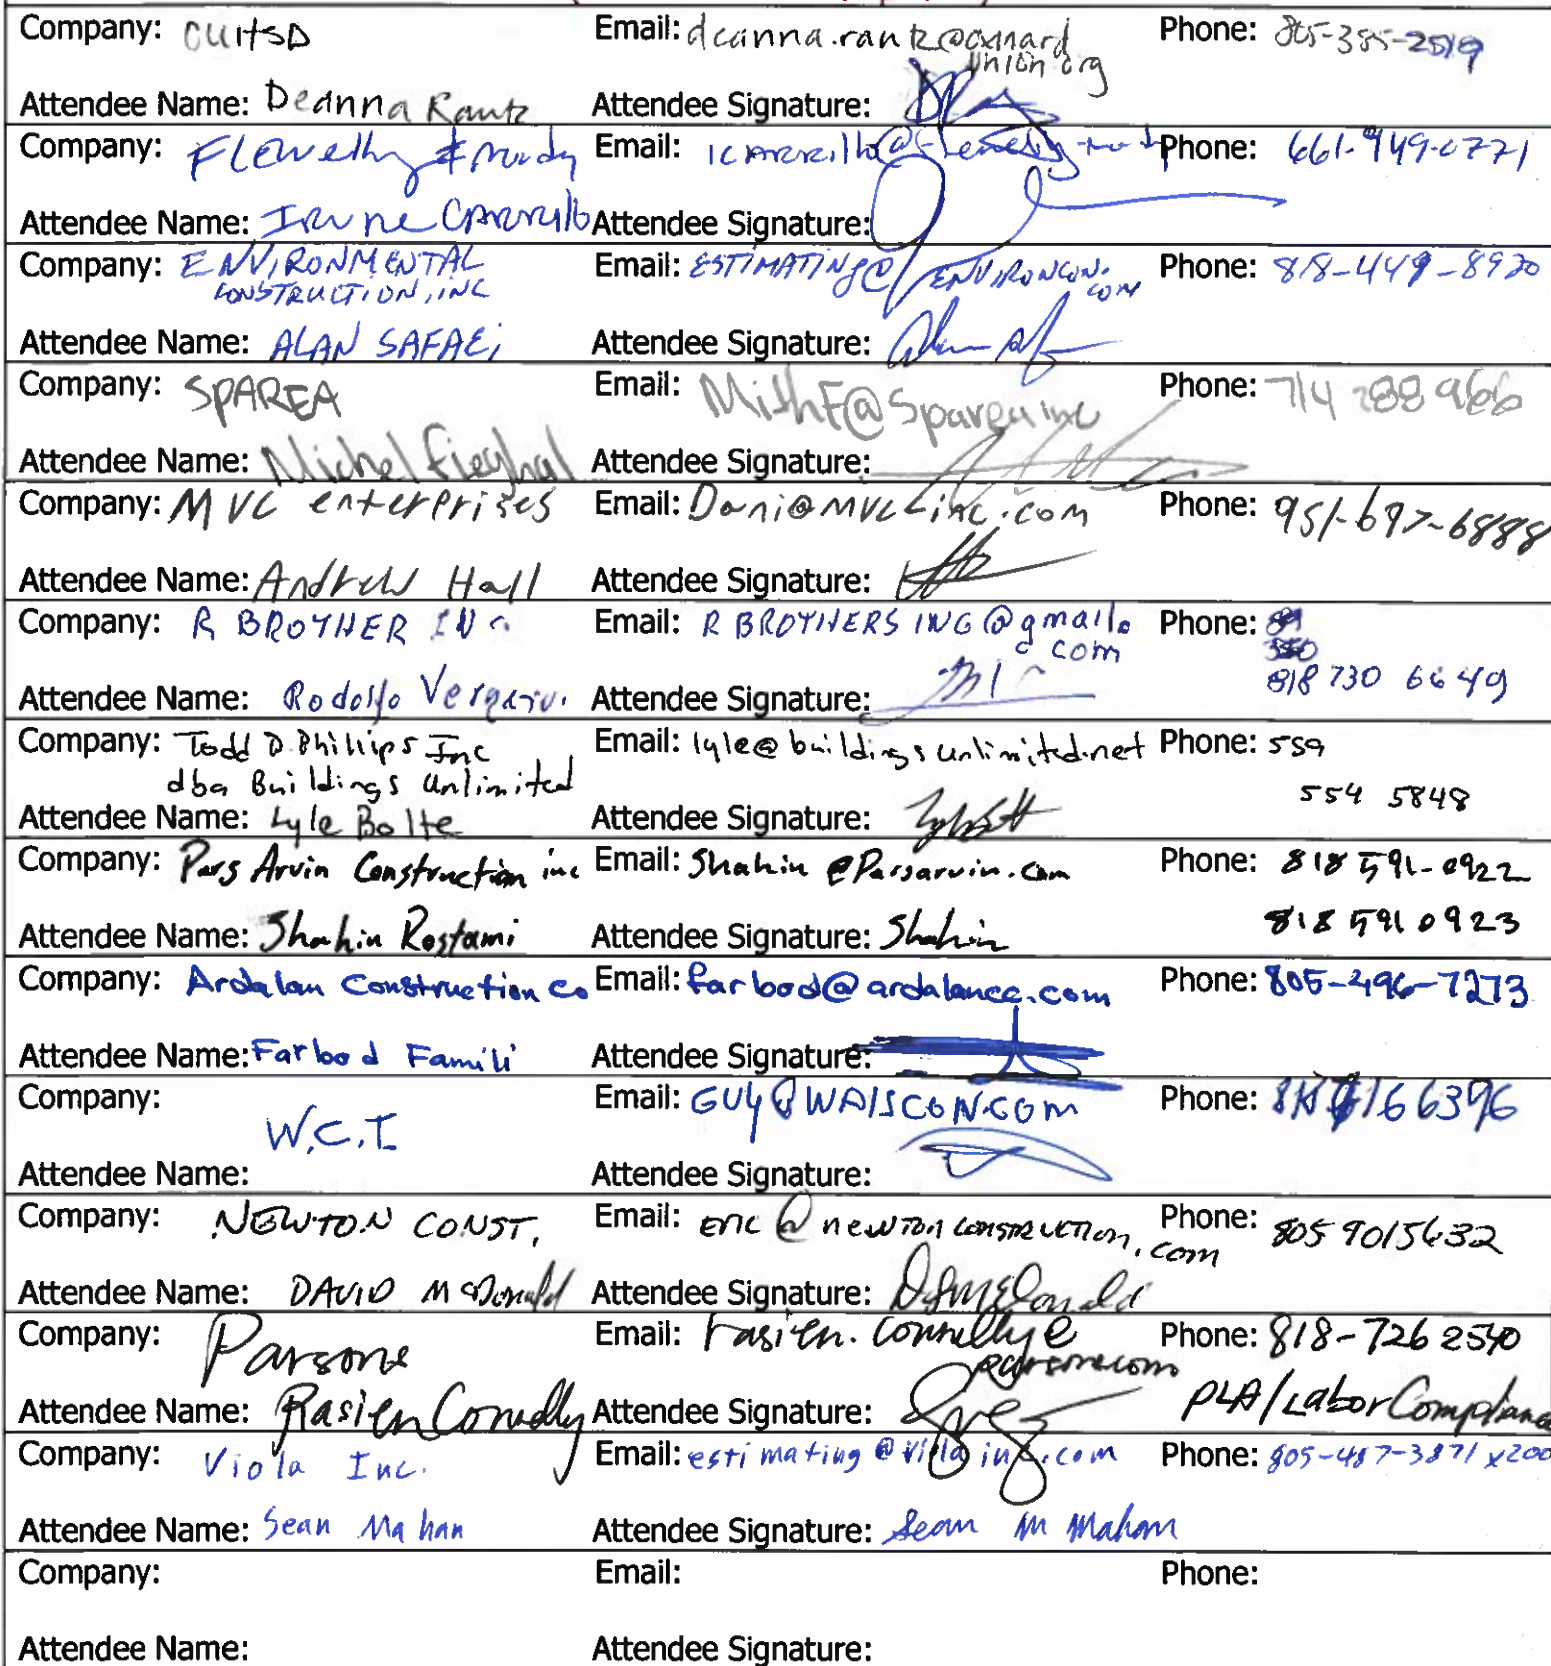 Company: OUHSD Email: deanna.rantz@oxnard Phone: 805-385-2519
union.org
Attendee Name: Deanna Rantz Attendee Signature:
Company: Flewelling & Moody Email: Phone: 661-949-0771
Attendee Name: Irene Carrillo Attendee Signature:
Company: ENVIRONMENTAL Email: ESTIMATING@ENVIRONCON. Phone: 818-449-8920
CONSTRUCTION, INC com
Attendee Name: ALAN SAFAEi Attendee Signature:
Company: SPAREA Email: MishF@Spareainc Phone: 714
Attendee Name: Michel Attendee Signature:
Company: MVC enterprises Email: Dani@mvc-inc.com Phone: 951-697-6888
Attendee Name: Andrew Hall Attendee Signature:
Company: R BROTHER INC. Email: R BROTHERS INC@gmail. Phone:
com
Attendee Name: Rodolfo Attendee Signature: 818 730 6649
Company: Todd D Phillips Inc Email: lyle@buildingsunlimited.net Phone: 559
dba Buildings Unlimited 554 5848
Attendee Name: Lyle Bolte Attendee Signature:
Company: Pars Arvin Construction inc Email: Shahin@Parsarvin.com Phone: 818 591-0922
Attendee Name: Shahin Rostami Attendee Signature: Shahin 818 591 0923
Company: Ardalan Construction Co Email: farbod@ardalancc.com Phone: 805-496-7273
Attendee Name: Farbod Famili Attendee Signature:
Company: Email: GUY@WAISCON.COM Phone:
W.C.I
Attendee Name: Attendee Signature:
Company: NEWTON CONST. Email: eric@newtonconstruction.com Phone: 805 9015632
Attendee Name: DAVID McDonald Attendee Signature: McDonald
Company: Parsons Email: rasien.connelly@ Phone: 818-726 2540
parsons.com
Attendee Name: Rasien Connelly Attendee Signature: PLA/Labor Compliance
Company: Viola Inc. Email: estimating@violainc.com Phone: 805-487-3871 x200
Attendee Name: Sean Mahan Attendee Signature: Sean M Mahan
Company: Email: Phone:
Attendee Name: Attendee Signature: